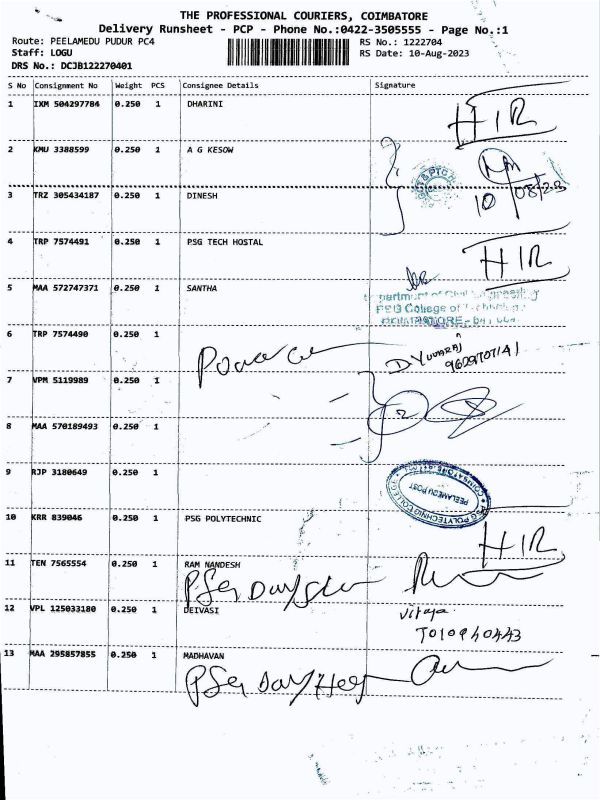 THE PROFESSIONAL COURIERS, COIMBATORE
Delivery Runsheet - PCP - Phone No.:0422-3505555 - Page No.:1
Route: PEELAMEDU PUDUR PC4 RS No.: 1222704
Staff: LOGU RS Date: 10-Aug-2023
DRS No.: DCJB122270401
S No Consignment No Weight PCS Consignee Details Signature
1 IXM 504297784 0.250 1 DHARINI
HIR
2 KMU 3388599 0.250 1 A G KESOW
3 TRZ 305434187 0.250 1 DINESH
10/08/23
4 TRP 7574491 0.250 1 PSG TECH HOSTAL
HIR
5 MAA 572747371 0.250 1 SANTHA
PSG College of
COIMBATORE - 641 004
6 TRP 7574490 0.250 1
D Yuvaraj
9629707141
7 VPM 5119989 0.250 1
8 MAA 570189493 0.250 1
9 RJP 3180649 0.250 1
PSG POLYTECHNIC COLLEGE
PEELAMEDU POST
COIMBATORE-641004
10 KRR 839046 0.250 1 PSG POLYTECHNIC
HIR
11 TEN 7565554 0.250 1 RAM NANDESH
PSG
12 VPL 125033180 0.250 1 DEIVASI
13 MAA 295857855 0.250 1 MADHAVAN
PSG